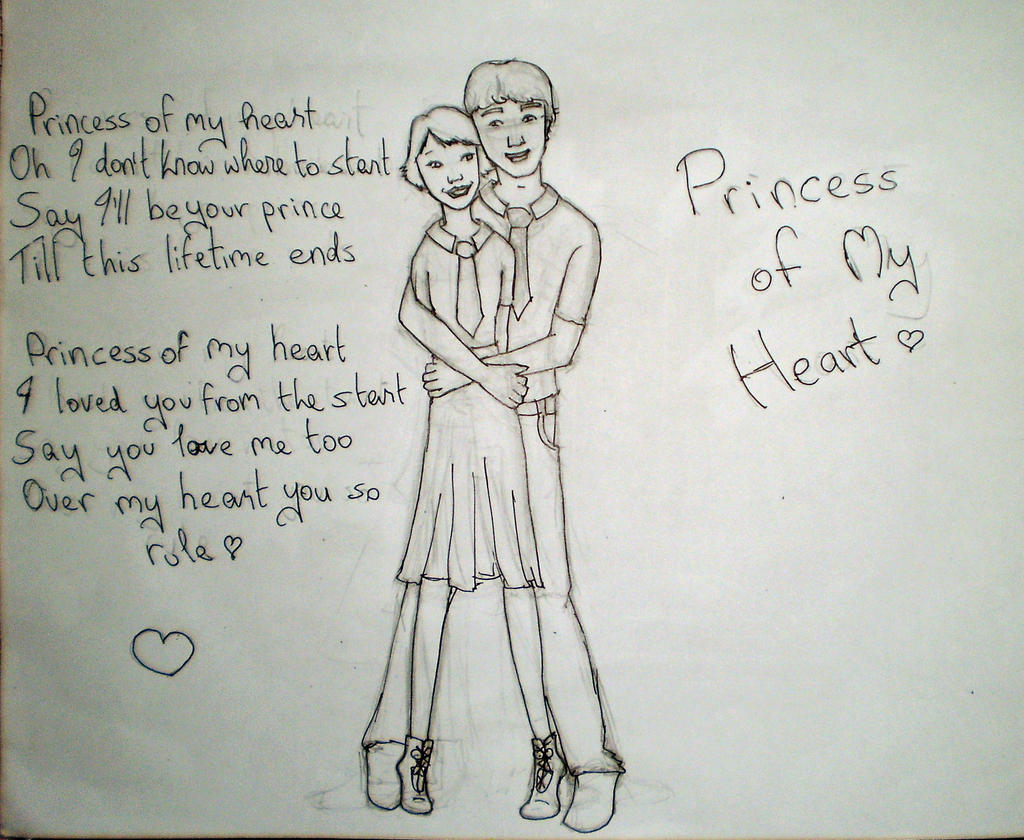 Princess of my heart
Oh I don't know where to start
Say I'll be your prince
Till this lifetime ends
Princess of my heart
I loved you from the start
Say you love me too
Over my heart you so
rule ♡
Princess
of My
Heart ♡